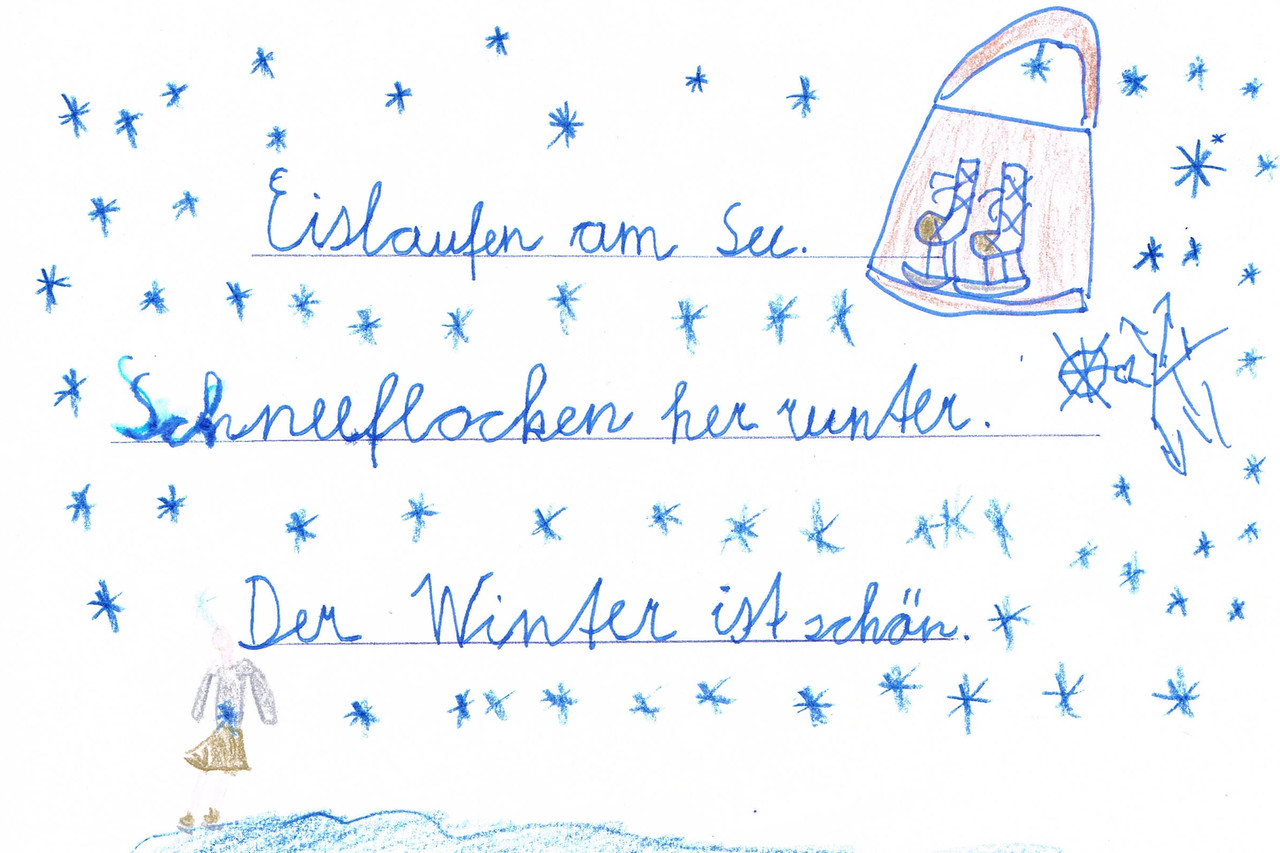 Eislaufen am See.
Schneeflocken her runter.
Der Winter ist schön.